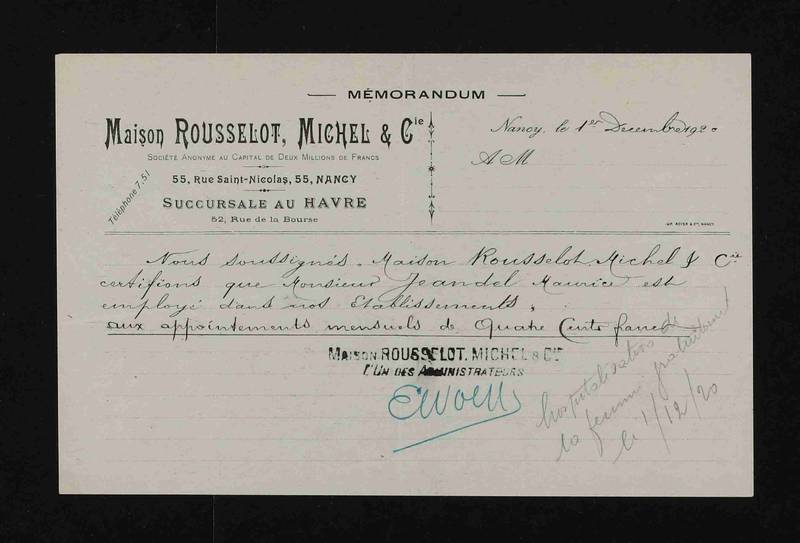 MÉMORANDUM
Maison ROUSSELOT, MICHEL & Cie
SOCIÉTÉ ANONYME AU CAPITAL DE DEUX MILLIONS DE FRANCS
55, Rue Saint-Nicolas, 55, NANCY
SUCCURSALE AU HAVRE
52, Rue de la Bourse
Téléphone 7.51
Nancy, le 1er Decembre 1920
A M
IMP. ROYER & Cie, NANCY
Nous soussignés. Maison Rousselot Michel & Cie
certifions que Monsieur Jeandel Maurice est
employé dans nos Etablissements,
aux appointements mensuels de Quatre Cents francs
MAISON ROUSSELOT, MICHEL & CIE
L'UN DES ADMINISTRATEURS
hospitalisation de
sa femme gratuitement
le 1/12/20